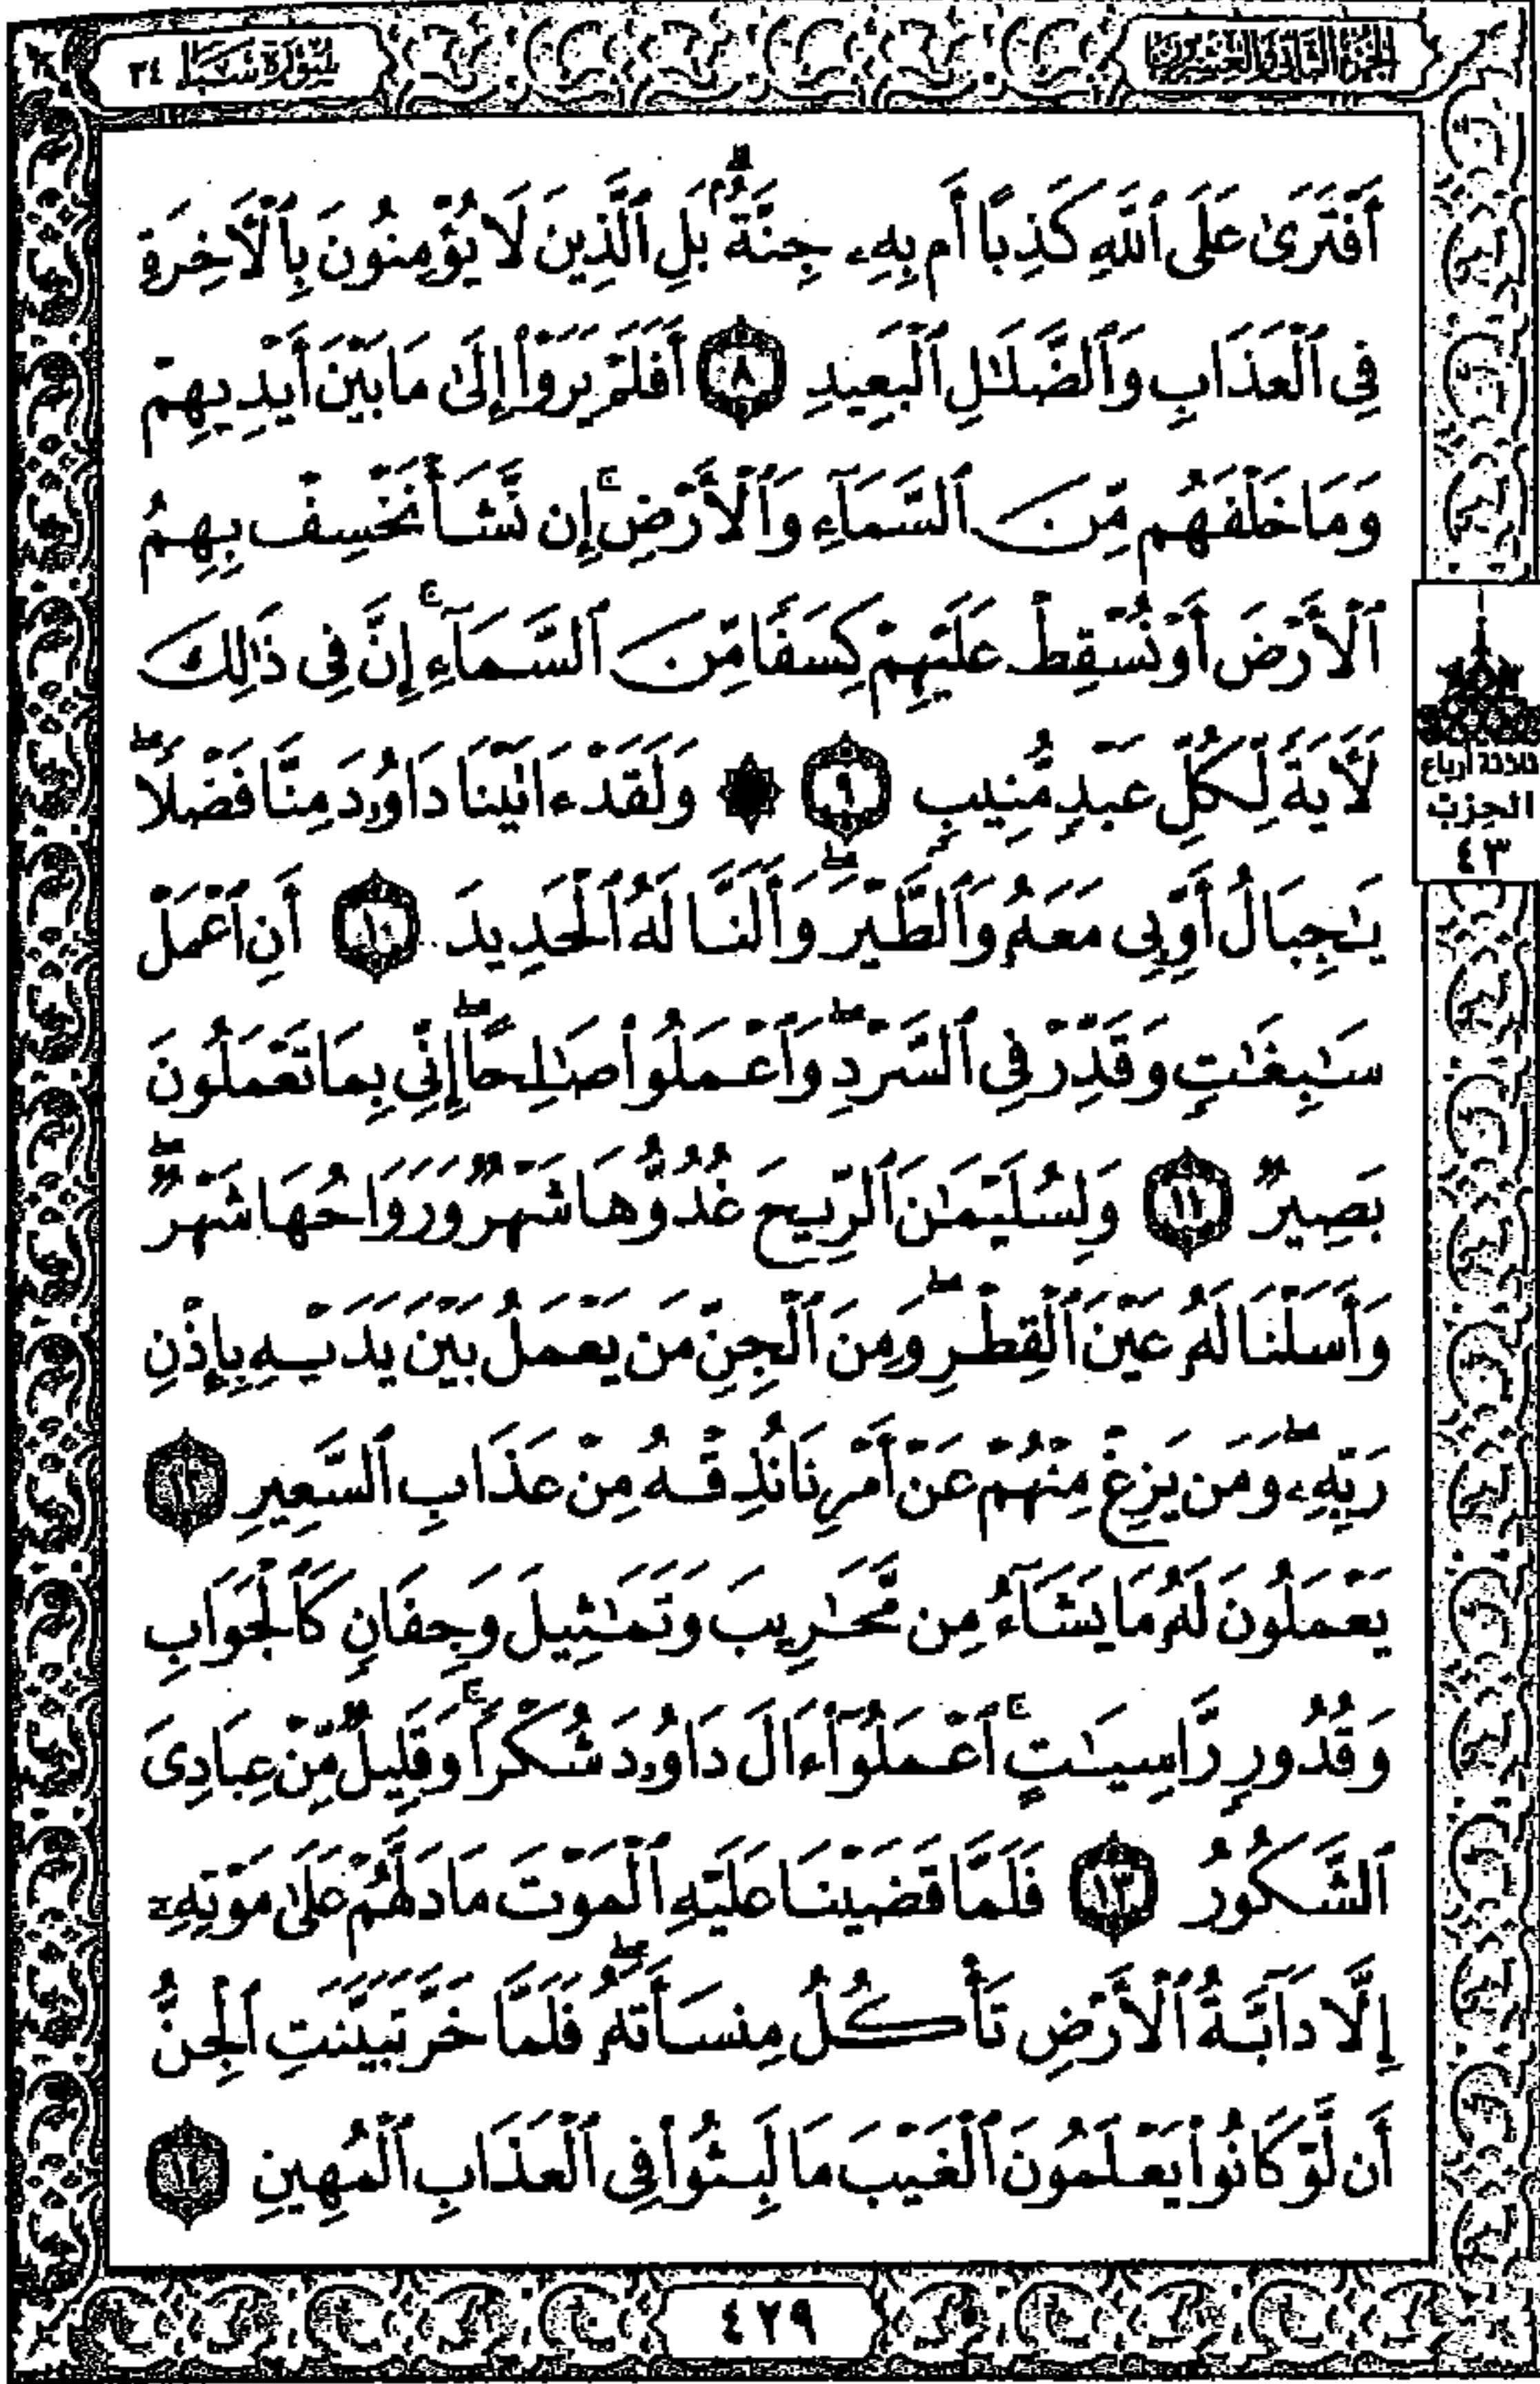 الجزء الثاني والعشرون
سورة سبأ ٣٤
أَفْتَرَىٰ عَلَى ٱللَّهِ كَذِبًا أَم بِهِۦ جِنَّةٌۢ ۗ بَلِ ٱلَّذِينَ لَا يُؤْمِنُونَ بِٱلْأَخِرَةِ
فِى ٱلْعَذَابِ وَٱلضَّلَٰلِ ٱلْبَعِيدِ ٨ أَفَلَمْ يَرَوْا۟ إِلَىٰ مَا بَيْنَ أَيْدِيهِمْ
وَمَا خَلْفَهُم مِّنَ ٱلسَّمَآءِ وَٱلْأَرْضِ ۚ إِن نَّشَأْ نَخْسِفْ بِهِمُ
ٱلْأَرْضَ أَوْ نُسْقِطْ عَلَيْهِمْ كِسَفًا مِّنَ ٱلسَّمَآءِ ۚ إِنَّ فِى ذَٰلِكَ
لَأٓيَةً لِّكُلِّ عَبْدٍ مُّنِيبٍ ٩ ۞ وَلَقَدْ ءَاتَيْنَا دَاوُۥدَ مِنَّا فَضْلًا ۖ
يَٰجِبَالُ أَوِّبِى مَعَهُۥ وَٱلطَّيْرَ ۖ وَأَلَنَّا لَهُ ٱلْحَدِيدَ ١٠ أَنِ ٱعْمَلْ
سَٰبِغَٰتٍ وَقَدِّرْ فِى ٱلسَّرْدِ ۖ وَٱعْمَلُوا۟ صَٰلِحًا ۖ إِنِّى بِمَا تَعْمَلُونَ
بَصِيرٌ ١١ وَلِسُلَيْمَٰنَ ٱلرِّيحَ غُدُوُّهَا شَهْرٌ وَرَوَاحُهَا شَهْرٌ ۖ
وَأَسَلْنَا لَهُۥ عَيْنَ ٱلْقِطْرِ ۖ وَمِنَ ٱلْجِنِّ مَن يَعْمَلُ بَيْنَ يَدَيْهِ بِإِذْنِ
رَبِّهِۦ ۖ وَمَن يَزِغْ مِنْهُمْ عَنْ أَمْرِنَا نُذِقْهُ مِنْ عَذَابِ ٱلسَّعِيرِ ١٢
يَعْمَلُونَ لَهُۥ مَا يَشَآءُ مِن مَّحَٰرِيبَ وَتَمَٰثِيلَ وَجِفَانٍ كَٱلْجَوَابِ
وَقُدُورٍ رَّاسِيَٰتٍ ۚ ٱعْمَلُوٓا۟ ءَالَ دَاوُۥدَ شُكْرًا ۚ وَقَلِيلٌ مِّنْ عِبَادِىَ
ٱلشَّكُورُ ١٣ فَلَمَّا قَضَيْنَا عَلَيْهِ ٱلْمَوْتَ مَا دَلَّهُمْ عَلَىٰ مَوْتِهِۦٓ
إِلَّا دَآبَّةُ ٱلْأَرْضِ تَأْكُلُ مِنسَأَتَهُۥ ۖ فَلَمَّا خَرَّ تَبَيَّنَتِ ٱلْجِنُّ
أَن لَّوْ كَانُوا۟ يَعْلَمُونَ ٱلْغَيْبَ مَا لَبِثُوا۟ فِى ٱلْعَذَابِ ٱلْمُهِينِ ١٤
ثلاثة أرباع
الحزب
٤٣
٤٢٩